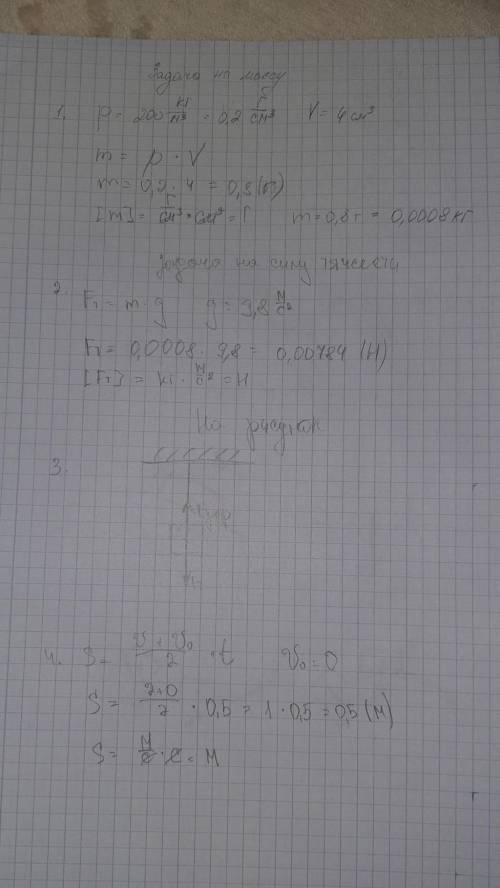 Задача на массу
1. ρ = 200 кг/м³ = 0,2 г/см³ V = 4 см³
m = ρ · V
m = 0,2 · 4 = 0,8 (г)
[m] = г/см³ · см³ = г m = 0,8 г = 0,0008 кг
Задача на силу тяжести
2. Fт = m · g g = 9,8 м/с²
Fт = 0,0008 · 9,8 = 0,00784 (Н)
[Fт] = кг · м/с² = Н
На рисунок
3.
4. S = v + v₀ / 2 · t v₀ = 0
S = 2+0 / 2 · 0,5 = 1 · 0,5 = 0,5 (м)
S = м/с · с = м